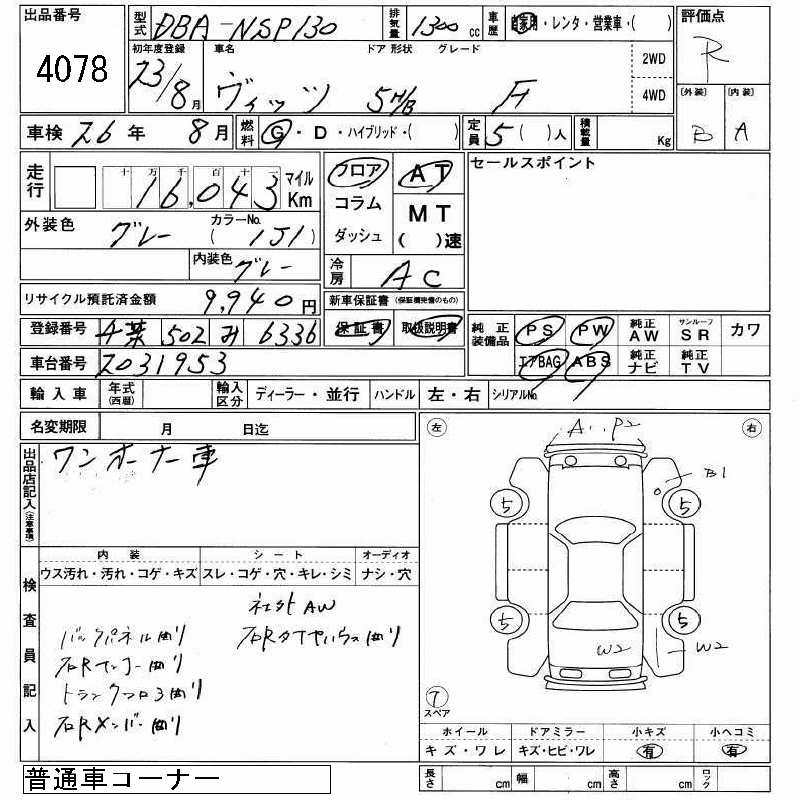 出品番号 型式 DBA-NSP130 排気量 1300 cc 車歴 自家用・レンタ・営業車・( ) 評価点 R
4078 初年度登録 23/8月 車名 ヴィッツ ドア 形状 5H/B グレード F 2WD 4WD
〔外装〕 B 〔内装〕 A
車検 26年 8月 燃料 G・D・ハイブリッド・( ) 定員 5( )人 積載量 Kg
走行 十万千百十一 16,043 マイル Km フロア コラム ダッシュ AT MT ( )速 セールスポイント
外装色 グレー カラーNo. ( 1J1 )
内装色 グレー 冷房 AC
リサイクル預託済金額 9,940円 新車保証書 (保証継完備のもの)
登録番号 千葉 502 み 6336 保証書 取扱説明書 純正装備品 PS PW 純正AW サンルーフ SR カワ
車台番号 2031953 エアBAG ABS 純正ナビ 純正TV
輸入車 年式(西暦) 輸入区分 ディーラー・並行 ハンドル 左・右 シリアルNo.
名変期限 月 日迄
左 右
A P2
出品店記入(注意事項) ワンオーナー車
B1
5 5
内装 シート オーディオ
ウス汚れ・汚れ・コゲ・キズ スレ・コゲ・穴・キレ・シミ ナシ・穴
検査員記入
社外AW
バックパネル曲り 右Rタイヤハウス曲り
5 5
右Rインナー曲り
W2 W2
トランクフロア曲り
右Rメンバー曲り
7 スペア
ホイール ドアミラー 小キズ 小ヘコミ
キズ・ワレ キズ・ヒビ・ワレ 有 有
普通車コーナー 長さ cm 幅 cm 高さ cm ロック